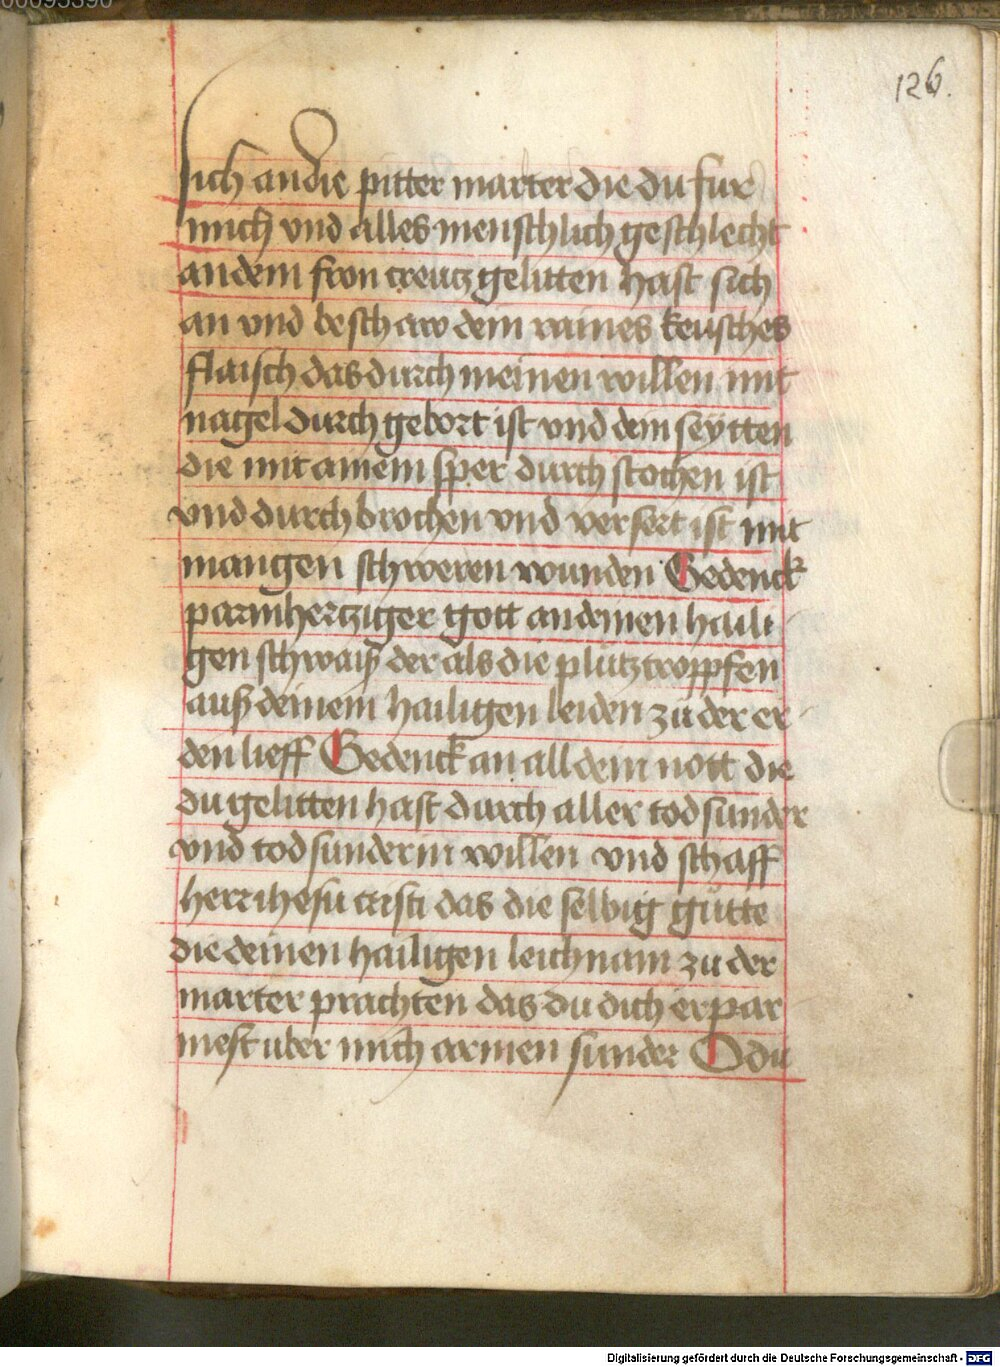 126.
sich an die pitter marter die du fur
mich vnd alles menschlich geschlecht
an dem fron creutz gelitten hast sich
an vnd beschaw dein raines keusches
flaisch das durch meinen willen mit
nagel durch gebort ist vnd dein seytten
die mit ainem sper durch stochen ist
vnd durch brochen vnd versert ist mit
mangen schweren wunden Gedenck
parmhertziger gott an deinen haili
gen schwaiß der als die plutztroppfen
auß deinem hailigen leiden zu der er
den lieff Gedenck an all dein nott die
du gelitten hast durch aller tod sunder
vnd tod sunderin willen vnd schaff
herr ihesu cristi das die selbig gütte
die deinen hailigen leichnam zu der
marter prachten das du dich erpar
mest uber mich armen sunder O du
Digitalisierung gefördert durch die Deutsche Forschungsgemeinschaft - DFG